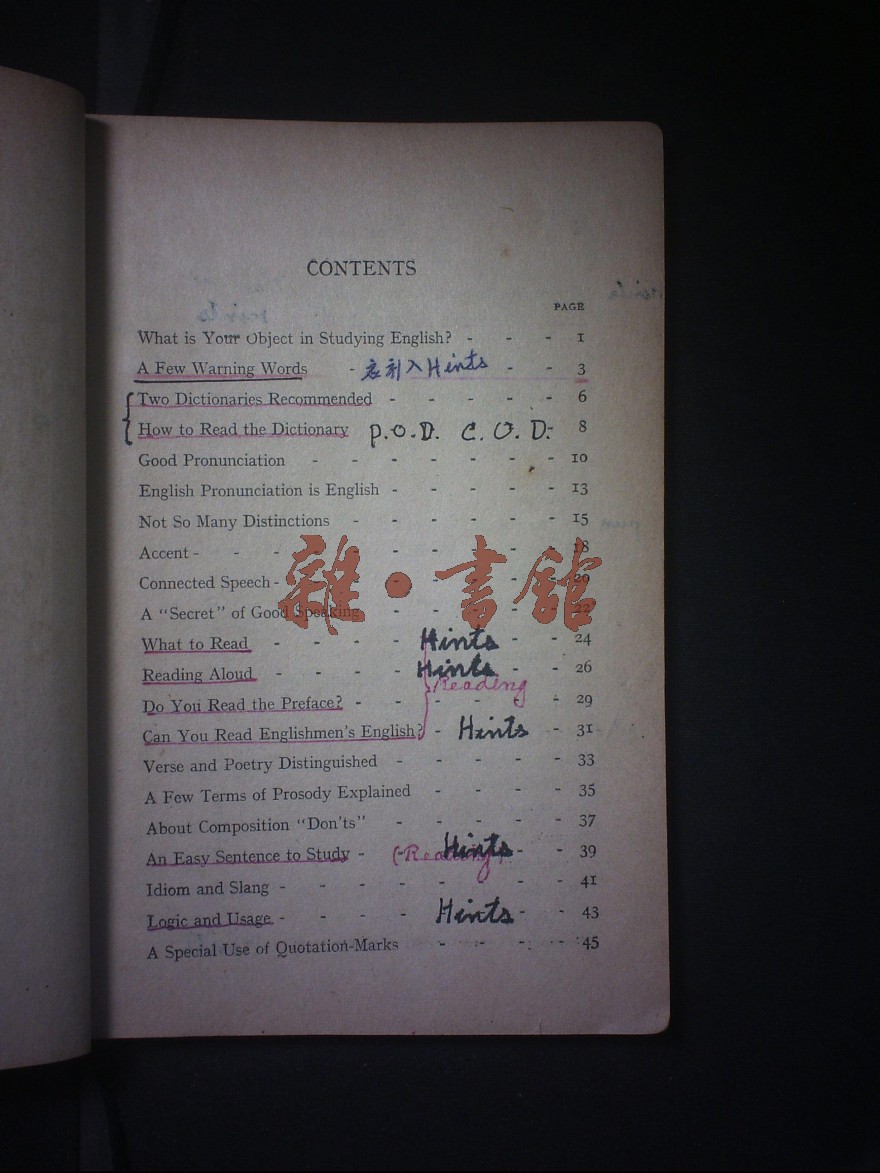 CONTENTS
PAGE
What is Your Object in Studying English? - - - 1
A Few Warning Words - 刻入Hints - - 3
Two Dictionaries Recommended - - - - - 6
How to Read the Dictionary P.O.D. C.O.D. - 8
Good Pronunciation - - - - - - - 10
English Pronunciation is English - - - - - 13
Not So Many Distinctions - - - - - - 15
Accent - - - - - - - - - - 18
Connected Speech - - - - - - - - 20
雜·書館
A "Secret" of Good Speaking - - - - - 22
What to Read - - - - Hints - - 24
Reading Aloud - - - - Hints - - 26
Reading
Do You Read the Preface? - - - - - - 29
Can You Read Englishmen's English? - Hints - 31
Verse and Poetry Distinguished - - - - - 33
A Few Terms of Prosody Explained - - - - 35
About Composition "Don'ts" - - - - - 37
An Easy Sentence to Study - - (Reading) Hints - - 39
Idiom and Slang - - - - - - - - 41
Logic and Usage - - - - Hints - - 43
A Special Use of Quotation-Marks - - - - 45